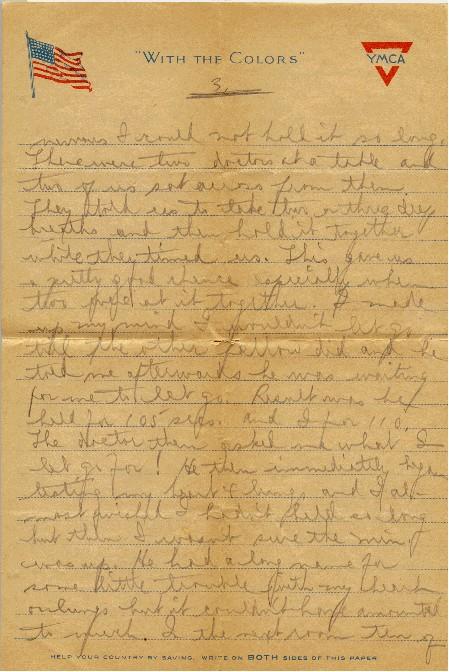 "WITH THE COLORS"
YMCA
3.
I could not hold it so long.
There were two doctors at a table and
two of us sat across from them.
They told us to take two or three deep
breaths and then hold it together
while they timed us. This gave us
a pretty good chance especially when
two at it together. I made
up my mind I wouldn't let go
till the other fellow did and he
told me afterwards he was waiting
for me to let go. Result was he
held for 105 secs. and I for 110.
The doctor then asked me what I
let go for! He then immediately began
testing my heart & lungs, and I al-
most wished I hadn't held so long
but then I wasn't sure the min
was up. He had a long name for
some little trouble with my heart
or lungs but it couldn't have amounted
to much. I the next room ten of
HELP YOUR COUNTRY BY SAVING. WRITE ON BOTH SIDES OF THIS PAPER